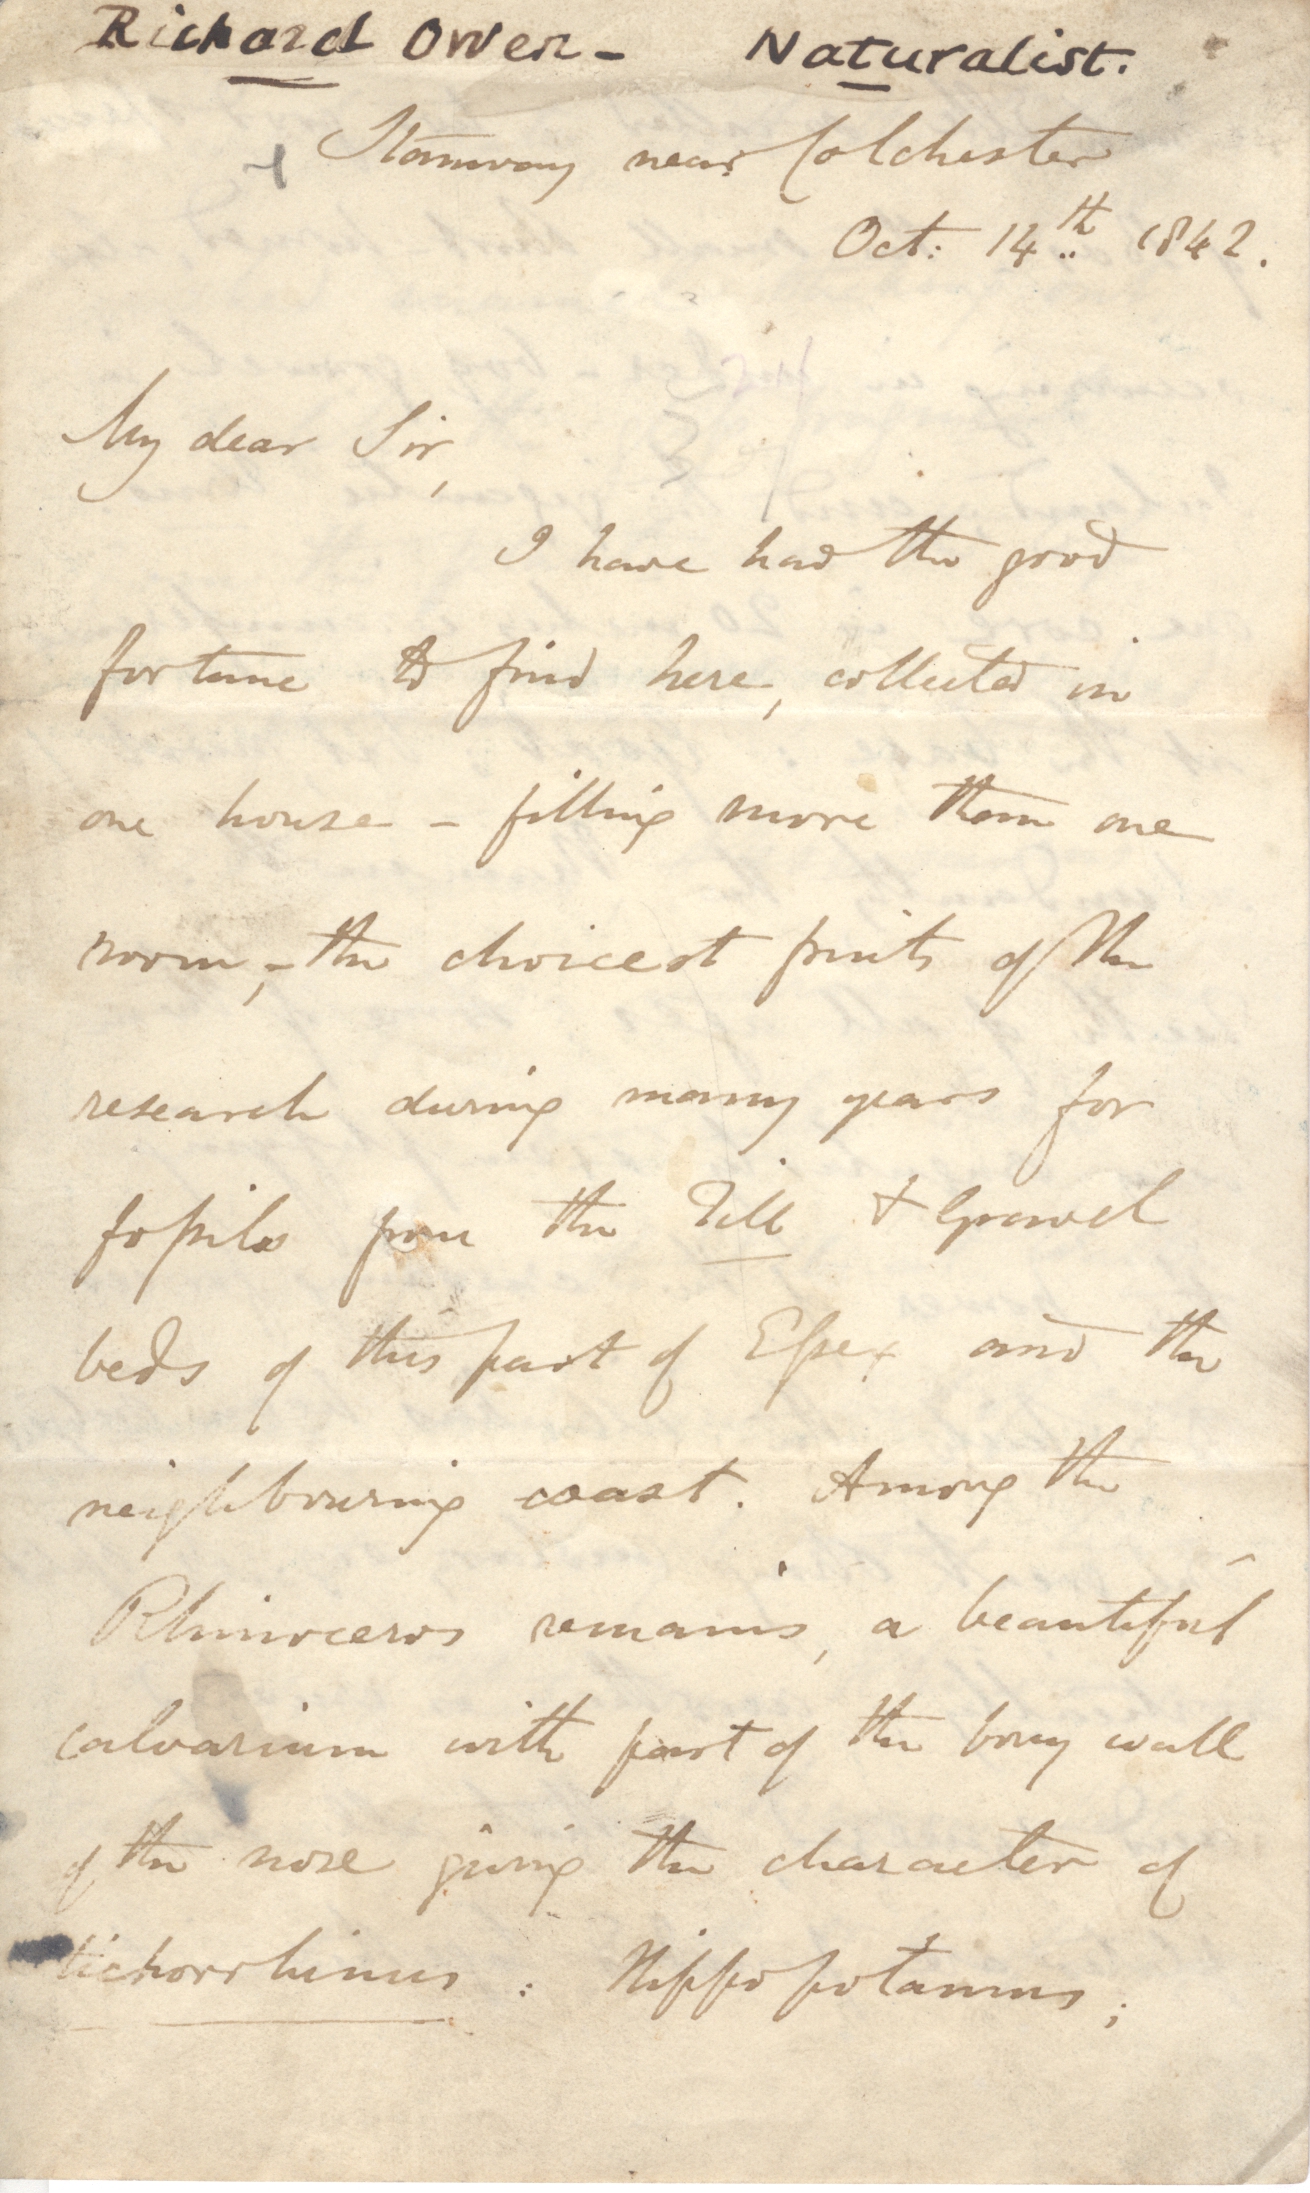 Richard Owen - Naturalist.
+ Stanway near Colchester
Oct: 14th 1842.
My dear Sir,
I have had the good
fortune to find here, collected in
one house - filling more than one
room, - the choicest fruits of the
research during many years for
fossils from the Till & Gravel
beds of this part of Essex and the
neighbouring coast. Among the
Rhinoceros remains, a beautiful
calvarium with part of the bony wall
of the nose giving the character of
tichorrhinus : Hippopotamus ;